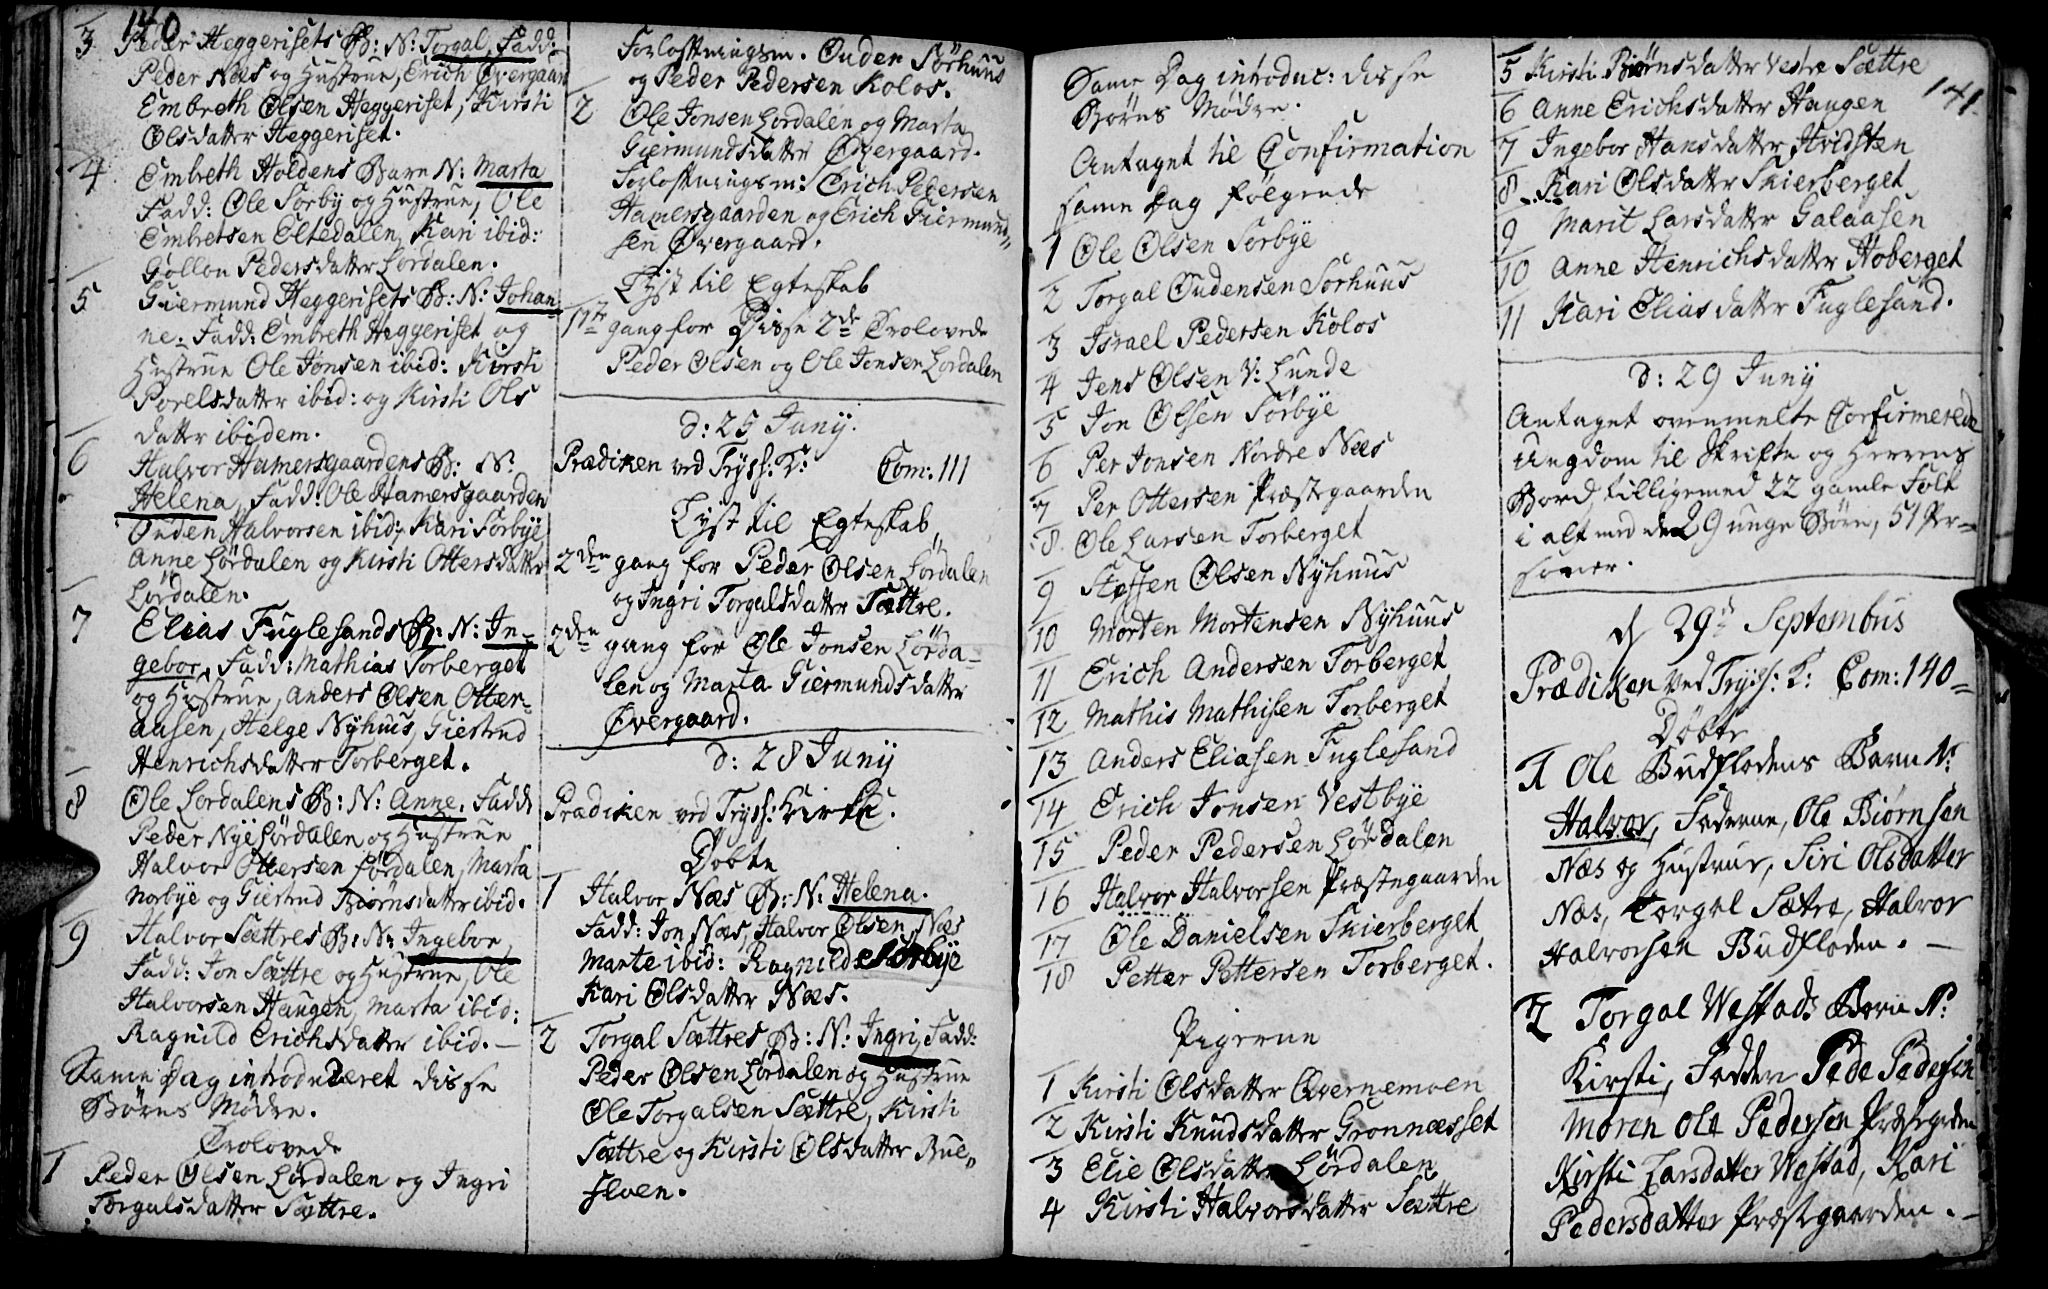 140
3 Peder Heggerisets B: N: Torgal, Fadd:
Peder Næs og Hustrue, Erich Øvergaar
Embreth Olsen Heggeriset, Kirsti
Olsdatter Heggeriset.
4 Embreth Holdens Barn N: Marta
Fadd: Ole Sorby og Hustrue, Ole
Embretsen Eltedalen, Kari ibid:
Gollon Pedersdatter Lordalen.
5 Giermund Heggerisets B: N: Johan-
ne. Fadd: Embreth Heggeriset og
Hustrue Ole Jonsen ibid: Kirsti
Porelsdatter ibid: og Kirsti Ols
datter ibidem.
6 Halvor Hamersgaardens B: N:
Helena, Fadd: Ole Hamersgaarden
Onden Halvorsen ibid: Kari Sorbye
Anne Lørdalen og Kirsti Ottersdatter
Lørdalen.
7 Elias Fuglesands B: N: In-
gebor, Fadd: Mathias Torberget
og Hustrue, Anders Olsen Otter-
aasen, Helge Nyhuus, Giertrud
Henrichsdatter Torberget.
8 Ole Lordalens B: N: Anne, Fadd:
Peder Nye Lørdalen og Hustrue
Halvor Ottersen Lørdalen, Marta
Norbye og Giertrud Biørnsdatter ibid.
9 Halvor Sættres B: N: Ingebor,
Fadd: Jon Sættre og Hustrue, Ole
Halvorsen Haugen, Marta ibid:
Ragnild Erichsdatter ibid. —
Same Dag introduceret disse
Børns Mødre.
Trolovede
1 Peder Olsen Lørdalen og Ingri
Torgalsdatter Sættre.
Forloftningsm. Ouden Sörhuus
og Peder Pedersen Kolos.
2 Ole Jonsen Lordalen og Marta
Giermundsdatter Øvergaard.
Forloftningsm: Erich Pedersen
Hamersgaarden og Erich Giermund„
sen Øvergaard.
Lyst til Egteskab
1te gang for Disse 2de Trolovede
Peder Olsen og Ole Jonsen Lordalen
d: 25 Juny.
Prædiken ved Trÿss: K: Com: 111
Lyst til Egteskab
2den gang for Peder Olsen Lørdalen
og Ingri Torgalsdatter Sættre.
2den gang for Ole Jonsen Lørda-
len og Marta Giermundsdatter
Øvergaard.
d: 28 Juny
Prædiken ved Trÿss: Kirke.
Döbte
1 Halvor Næs B: N: Helena.
Fadd: Jon Næs, Halvor Olsen Næs
Marte ibid: Ragnild Sörbye
Kari Olsdatter Næs.
2 Torgal Sættres B: N: Ingri, Fadd:
Peder Olsen Lørdalen og Hustrue
Ole Torgalsen Sættre, Kirsti
Sættre og Kirsti Olsdatter Bue„
floen.
Same Dag introduc: disse
Børns Mødre.
Antaget til Confirmation
same Dag følgende
1 Ole Olsen Sorbye
2 Torgal Oudensen Sorhuus
3 Israel Pedersen Kolos
4 Jens Olsen V: Lunde
5 Jon Olsen Sørbye
6 Per Jonsen Nordre Næs
7 Per Ottersen Præstegaarden
8 Ole Larsen Torberget
9 Steffen Olsen Nyhuus
10 Morten Mortensen Nyhuus
11 Erich Andersen Torberget
12 Mathis Mathisen Torberget
13 Anders Eliasen Fuglesand
14 Erich Jonsen Vestbye
15 Peder Pedersen Lørdalen
16 Halvor Halvorsen Præstegaarden
17 Ole Danielsen Skierberget
18 Petter Pettersen Torberget.
Pigerne
1 Kirsti Olsdatter Qvernemoen
2 Kirsti Knudsdatter Gronnæsset
3 Elie Olsdatter Lørdalen
4 Kirsti Halvorsdatter Sættre
141.
5 Kirsti Biørnsdatter Vestre Sættre
6 Anne Erichsdatter Haugen
7 Ingebor Hansdatter Hvidsten
8 Kari Olsdatter Skierberget
9 Marit Larsdatter Galaasen
10 Anne Henrichsdatter Hoberget
11 Kari Eliasdatter Fuglesand.
d: 29 Juny
Antaget ovenmelte Confirmerede
Ungdom til Skrifte og Herrens
Bord, tilligemed 22 gamle Folk
i alt med de 29 unge Børn, 51 Per-
soner.
d 29d Septembus
Prædiken ved Trÿss: K: Com: 140 =
Döbte
1 Ole Budflodens Barn N:
Halvor, Fadderne, Ole Biørnsen
Næs og Hustrue, Siri Olsdatter
Næs, Torgal Sætre, Halvor
Halvorsen Budfloden. —
2 Torgal Westads Barn N:
Kirsti, Fadder Pede Pedersen
Moren Ole Pedersen Præstegrden
Kirsti Larsdatter Westad, Kari
Pedersdatter Præstgaarden. —